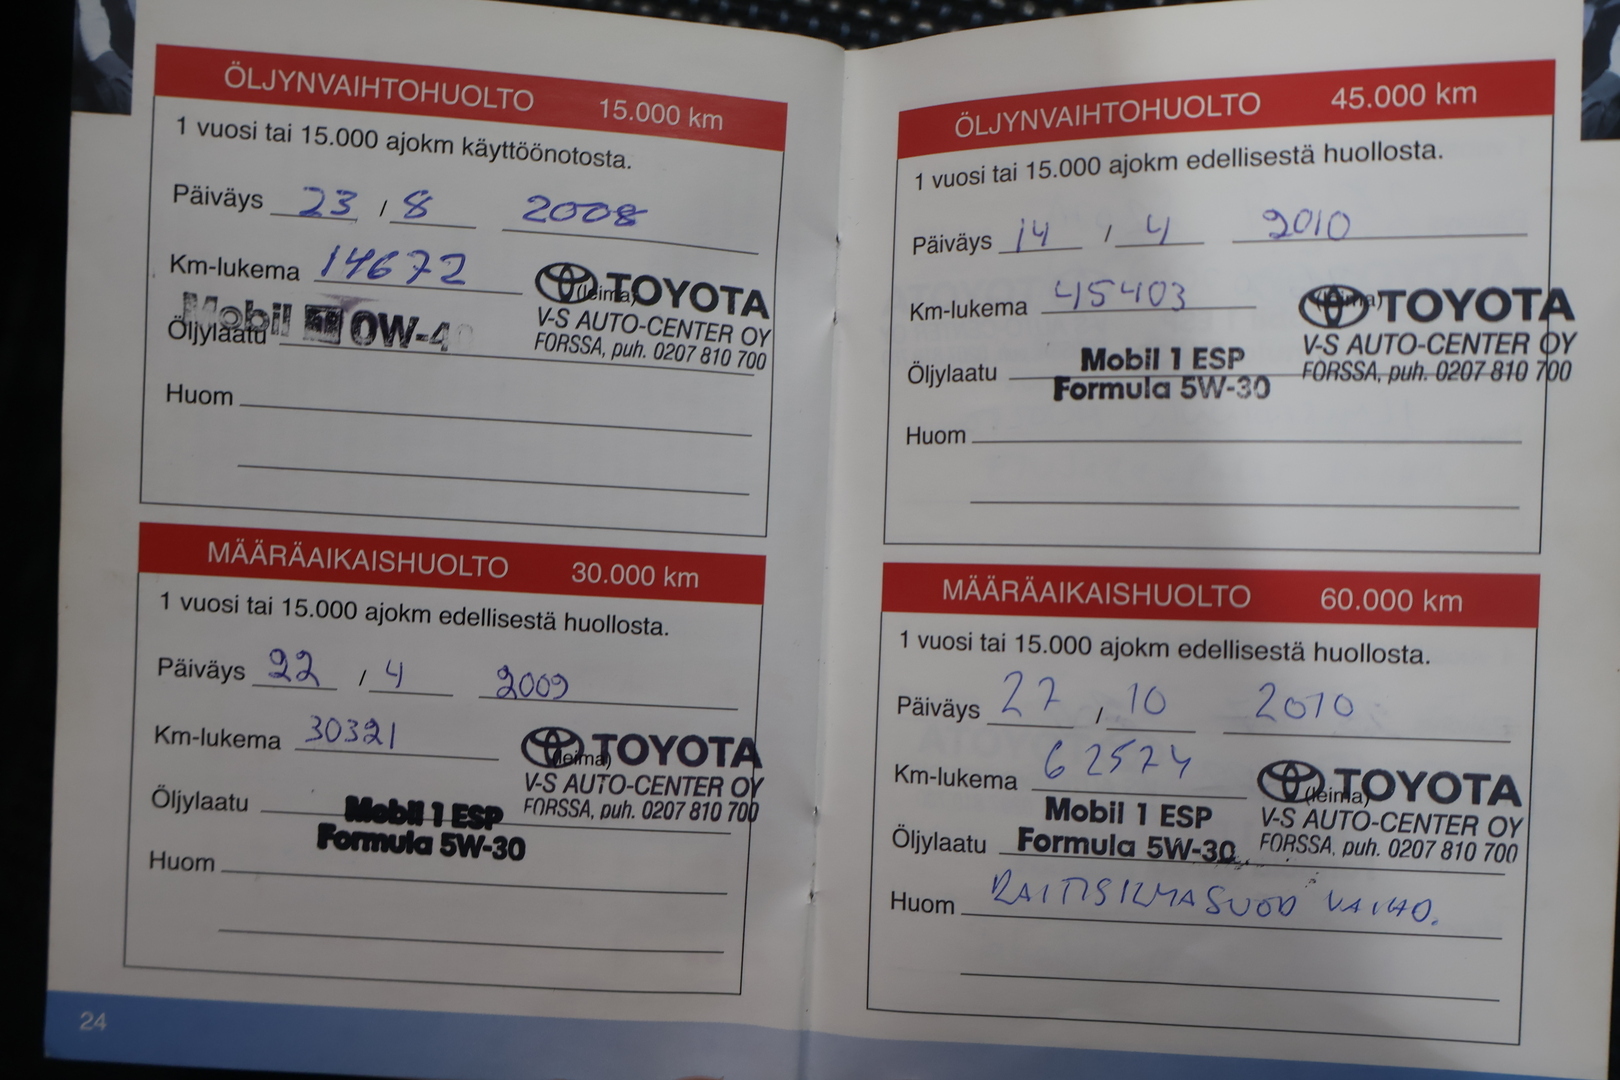 ÖLJYNVAIHTOHUOLTO 15.000 km
1 vuosi tai 15.000 ajokm käyttöönotosta.
Päiväys 23 / 8 2008
Km-lukema 14672
(leima) TOYOTA
V-S AUTO-CENTER OY
FORSSA, puh. 0207 810 700
Mobil 1 0W-40
Öljylaatu
Huom
MÄÄRÄAIKAISHUOLTO 30.000 km
1 vuosi tai 15.000 ajokm edellisestä huollosta.
Päiväys 22 / 4 2009
Km-lukema 30321
(leima) TOYOTA
V-S AUTO-CENTER OY
FORSSA, puh. 0207 810 700
Öljylaatu Mobil 1 ESP
Formula 5W-30
Huom
24
ÖLJYNVAIHTOHUOLTO 45.000 km
1 vuosi tai 15.000 ajokm edellisestä huollosta.
Päiväys 14 / 4 2010
Km-lukema 45403
(leima) TOYOTA
V-S AUTO-CENTER OY
FORSSA, puh. 0207 810 700
Öljylaatu Mobil 1 ESP
Formula 5W-30
Huom
MÄÄRÄAIKAISHUOLTO 60.000 km
1 vuosi tai 15.000 ajokm edellisestä huollosta.
Päiväys 27 / 10 2010
Km-lukema 62574
(leima) TOYOTA
V-S AUTO-CENTER OY
FORSSA, puh. 0207 810 700
Mobil 1 ESP
Öljylaatu Formula 5W-30
Huom RAITISILMASUOD VAIHD.